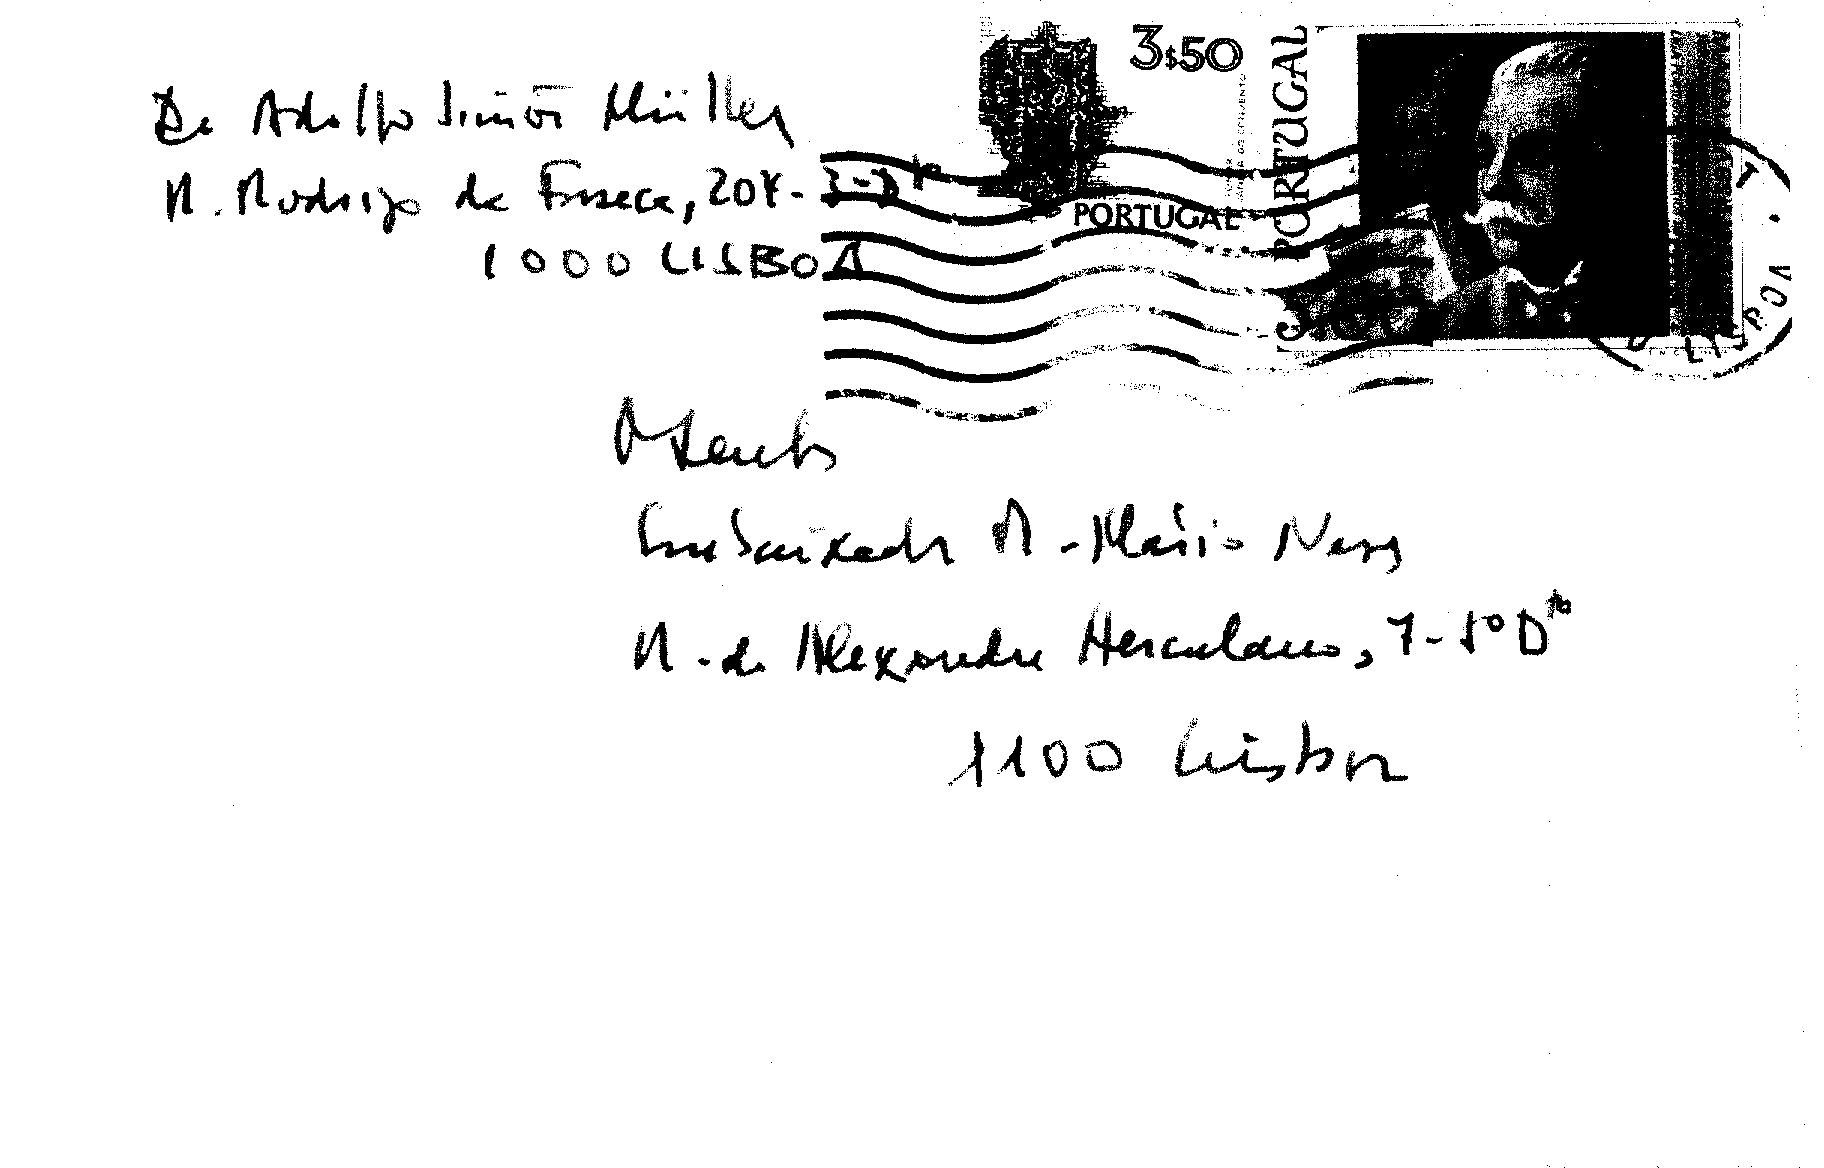 De Adolfo Simões Müller
R. Rodrigo da Fonseca, 204-3-Dto
1000 LISBOA
3$50
PORTUGAL
PORTUGAL
LISBOA
Embaixador M. Mário Neves
R. de Alexandre Herculano, 7-5º Dto
1100 Lisboa